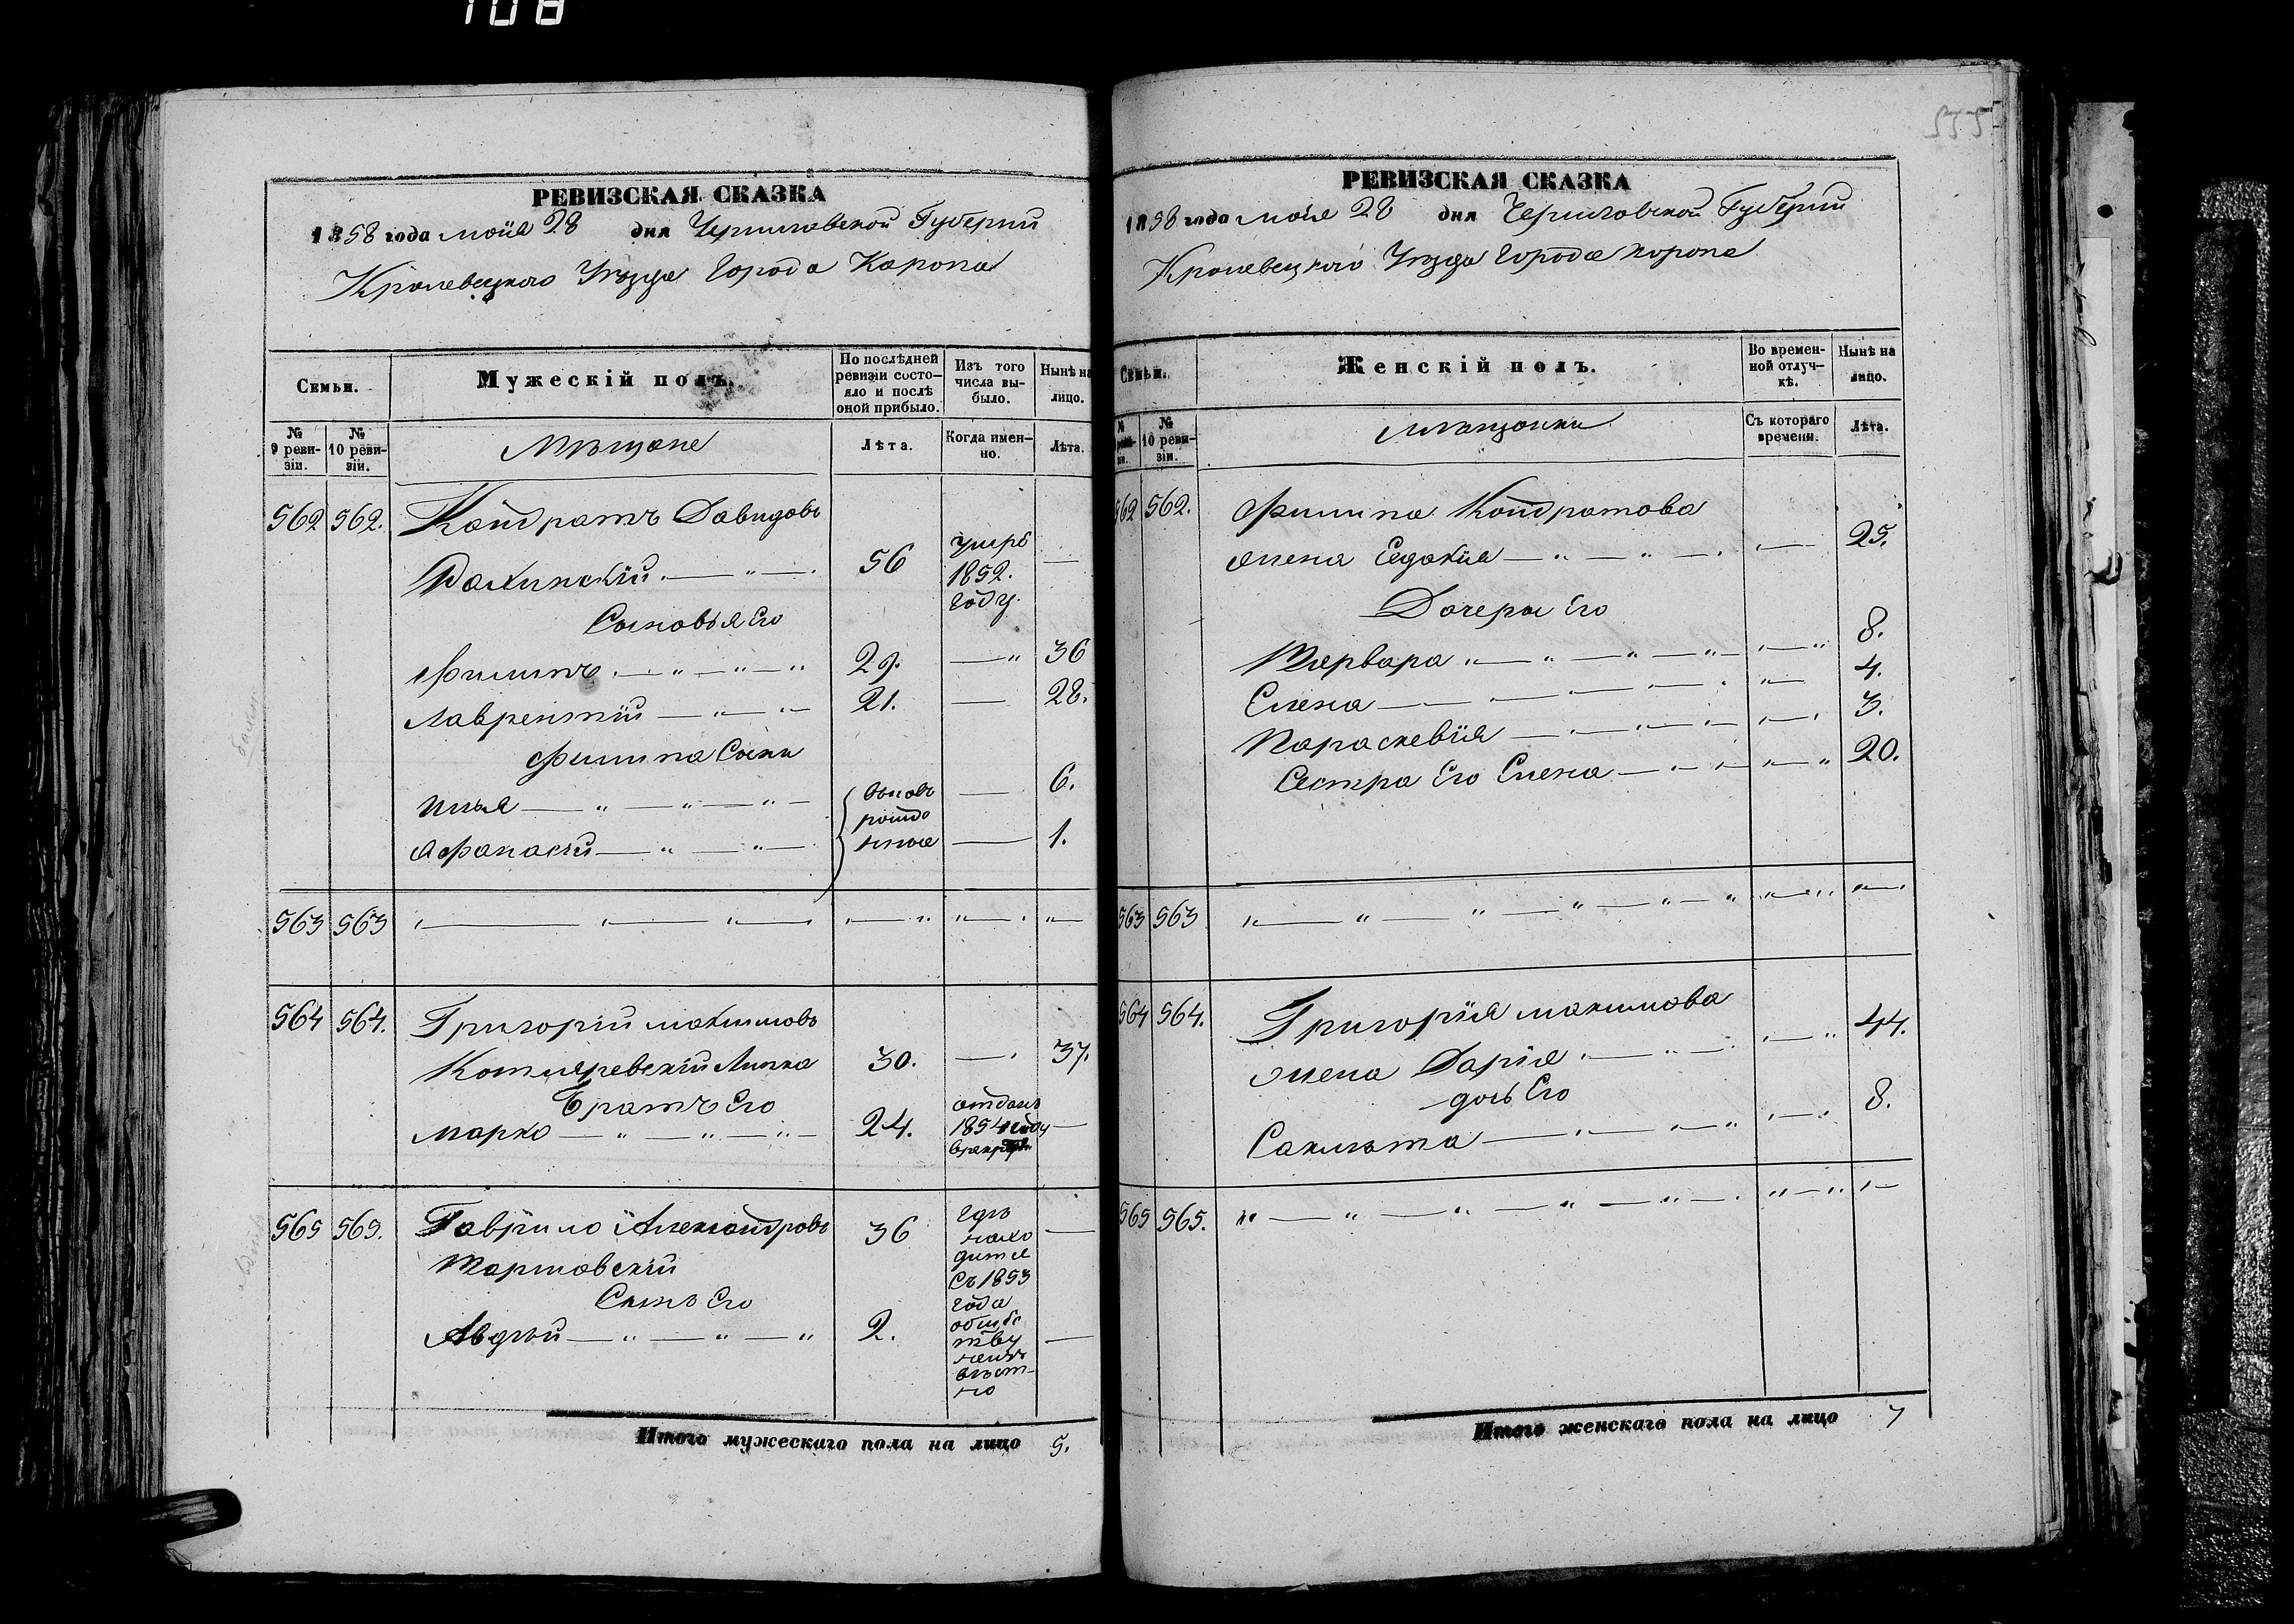 108
РЕВИЗСКАЯ СКАЗКА
1858 года маія 28 дня Черниговской Губерніи
Кролевецкого Уѣзда Города Коропа
Семьи.
Мужескій полъ.
По послѣдней ревизіи состояло и послѣ оной прибыло.
Изъ того числа выбыло.
Нынѣ на лицо.
№ 9 ревизіи.
№ 10 ревизіи.
Мѣщане
Лѣта.
Когда именно.
Лѣта.
562 562. Кондратъ Давидовъ
56 умръ 1852. году. —
Сыновья Его
Филипъ 29. — 36
Лаврентій 21. — 28.
Филипа Сыни
Илья — 6.
вновь рожденные
Афанасій — 1.
563 563
564 564. Григорій Максимовъ
Котляревскій Липка 30. — 37.
Братъ Его
Марко 24. отданъ 1854 году —
565 565. Гаврило Александровъ 36 —
Сынъ Его
Авдѣй 2. —
гдѣ находится съ 1853 года обществу неизвѣстно
Итого мужескаго пола на лицо 5.
555
РЕВИЗСКАЯ СКАЗКА
1858 года маія 28 дня Черниговской Губерніи
Кролевецкого Уѣзда Города Коропа
Семьи.
Женскій полъ.
Во временной отлучкѣ.
Нынѣ на лицо.
№ 10 ревизіи.
Мѣщанки
Съ котораго времени.
Лѣта.
562 562. Филипа Кондратова
жена Евдокія — 25.
Дочери Его
Варвара — 8.
Елена — 4.
Параскевія — 3.
Сестра Его Елена — 20.
563 563
564 564. Григорія Максимова
жена Дарія — 44.
дочь Его
— 8.
565 565.
Итого женскаго пола на лицо 7